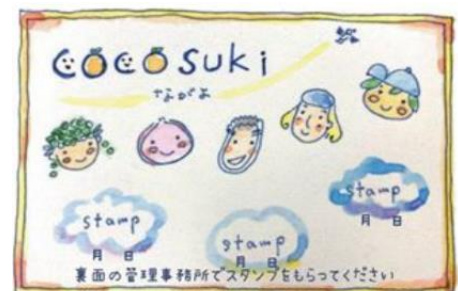 COCOSuki
ながよ
stamp
月 日
stamp
月 日
stamp
月 日
裏面の管理事務所でスタンプをもらってください